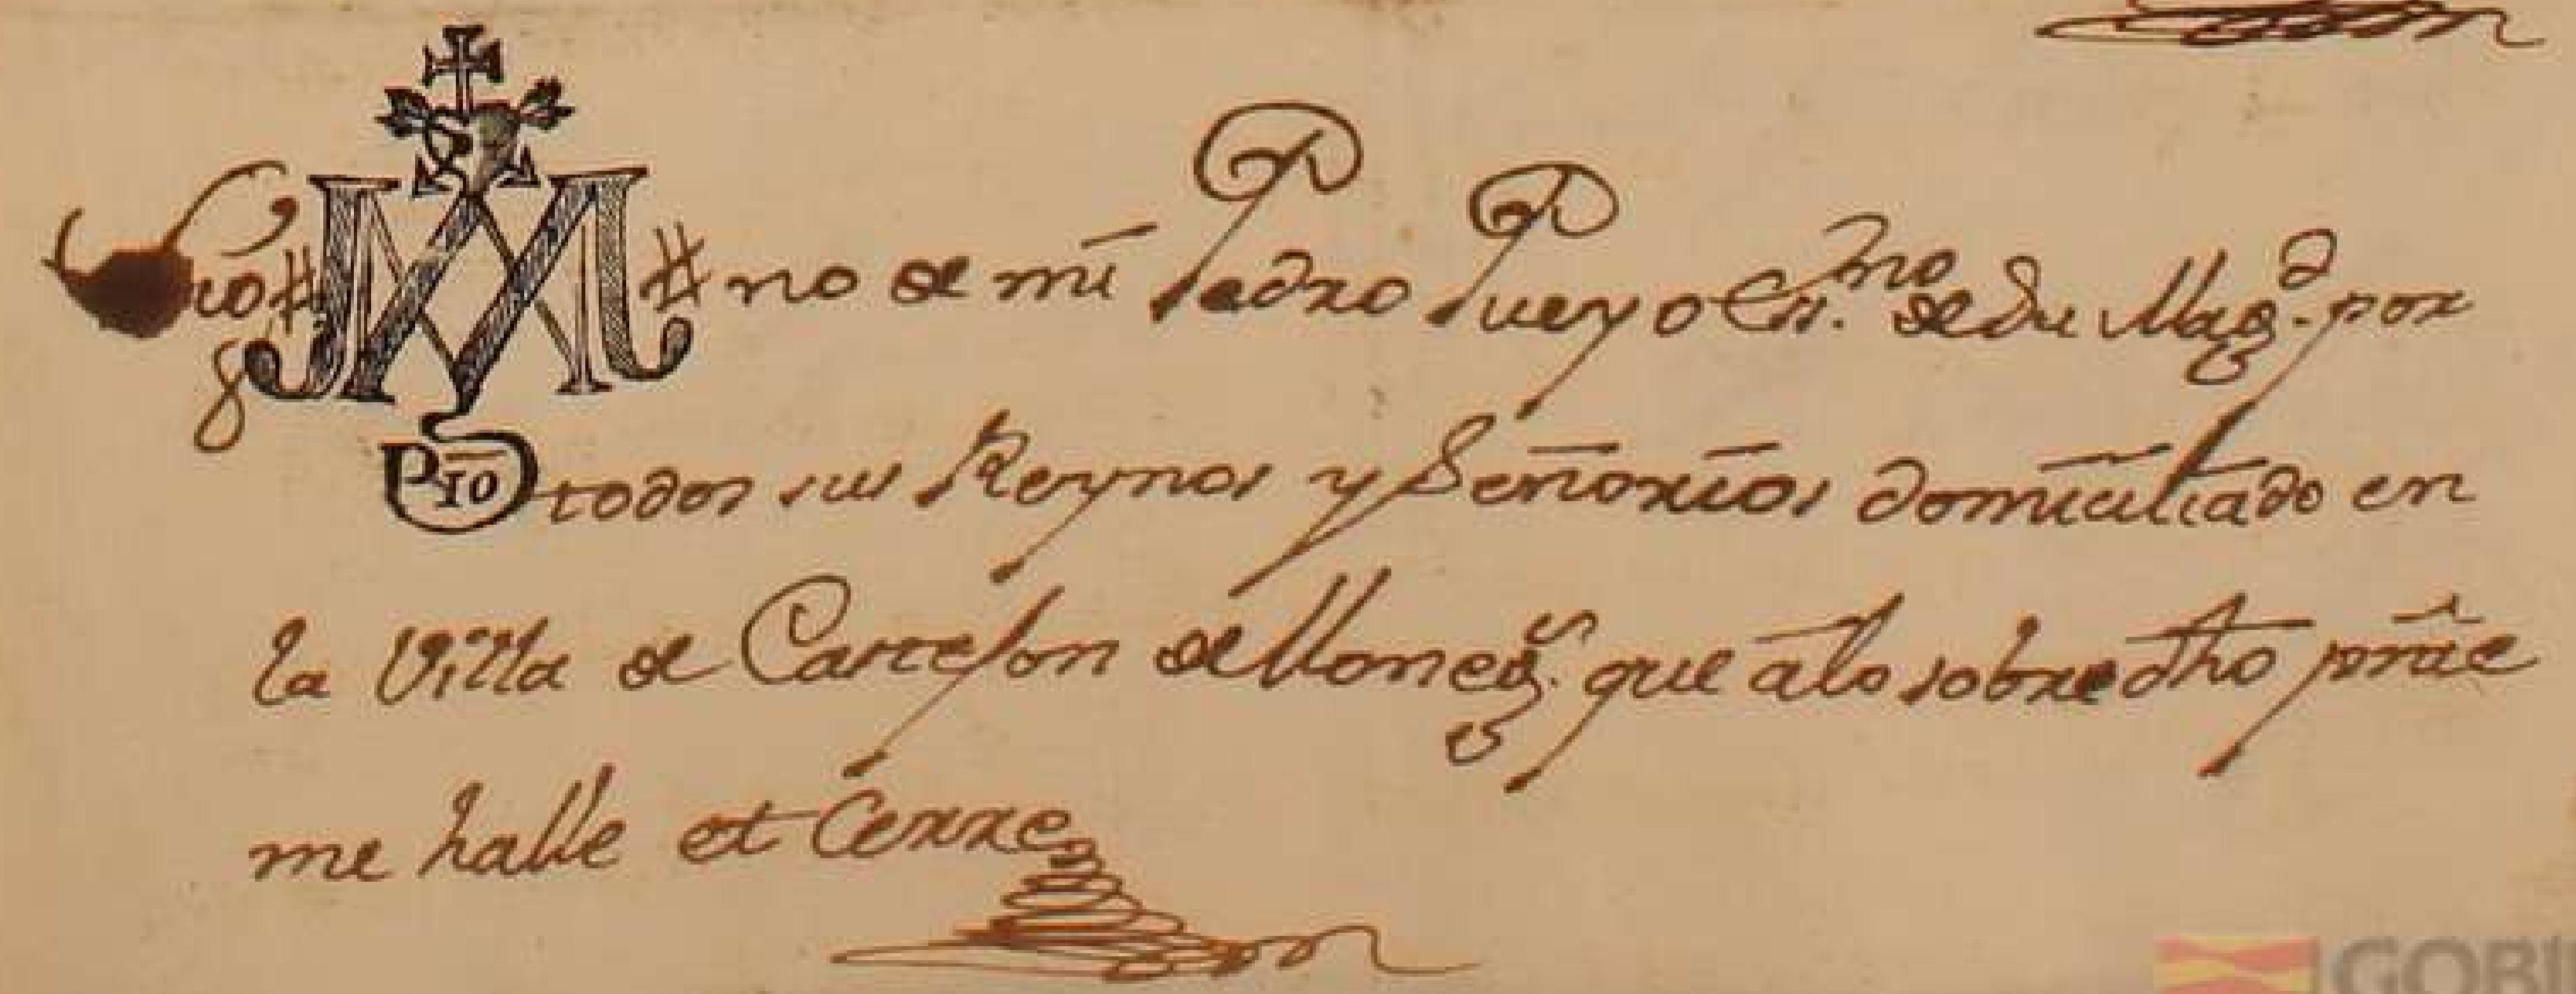 no de mi Pedro Pueyo Es.no de Su Mag.d por
Pio todos sus Reynos y Señorios domiciliado en
la Villa de Castejon de Moneg.s que a lo sobre dho pnte
me halle et Cerre
GOBI